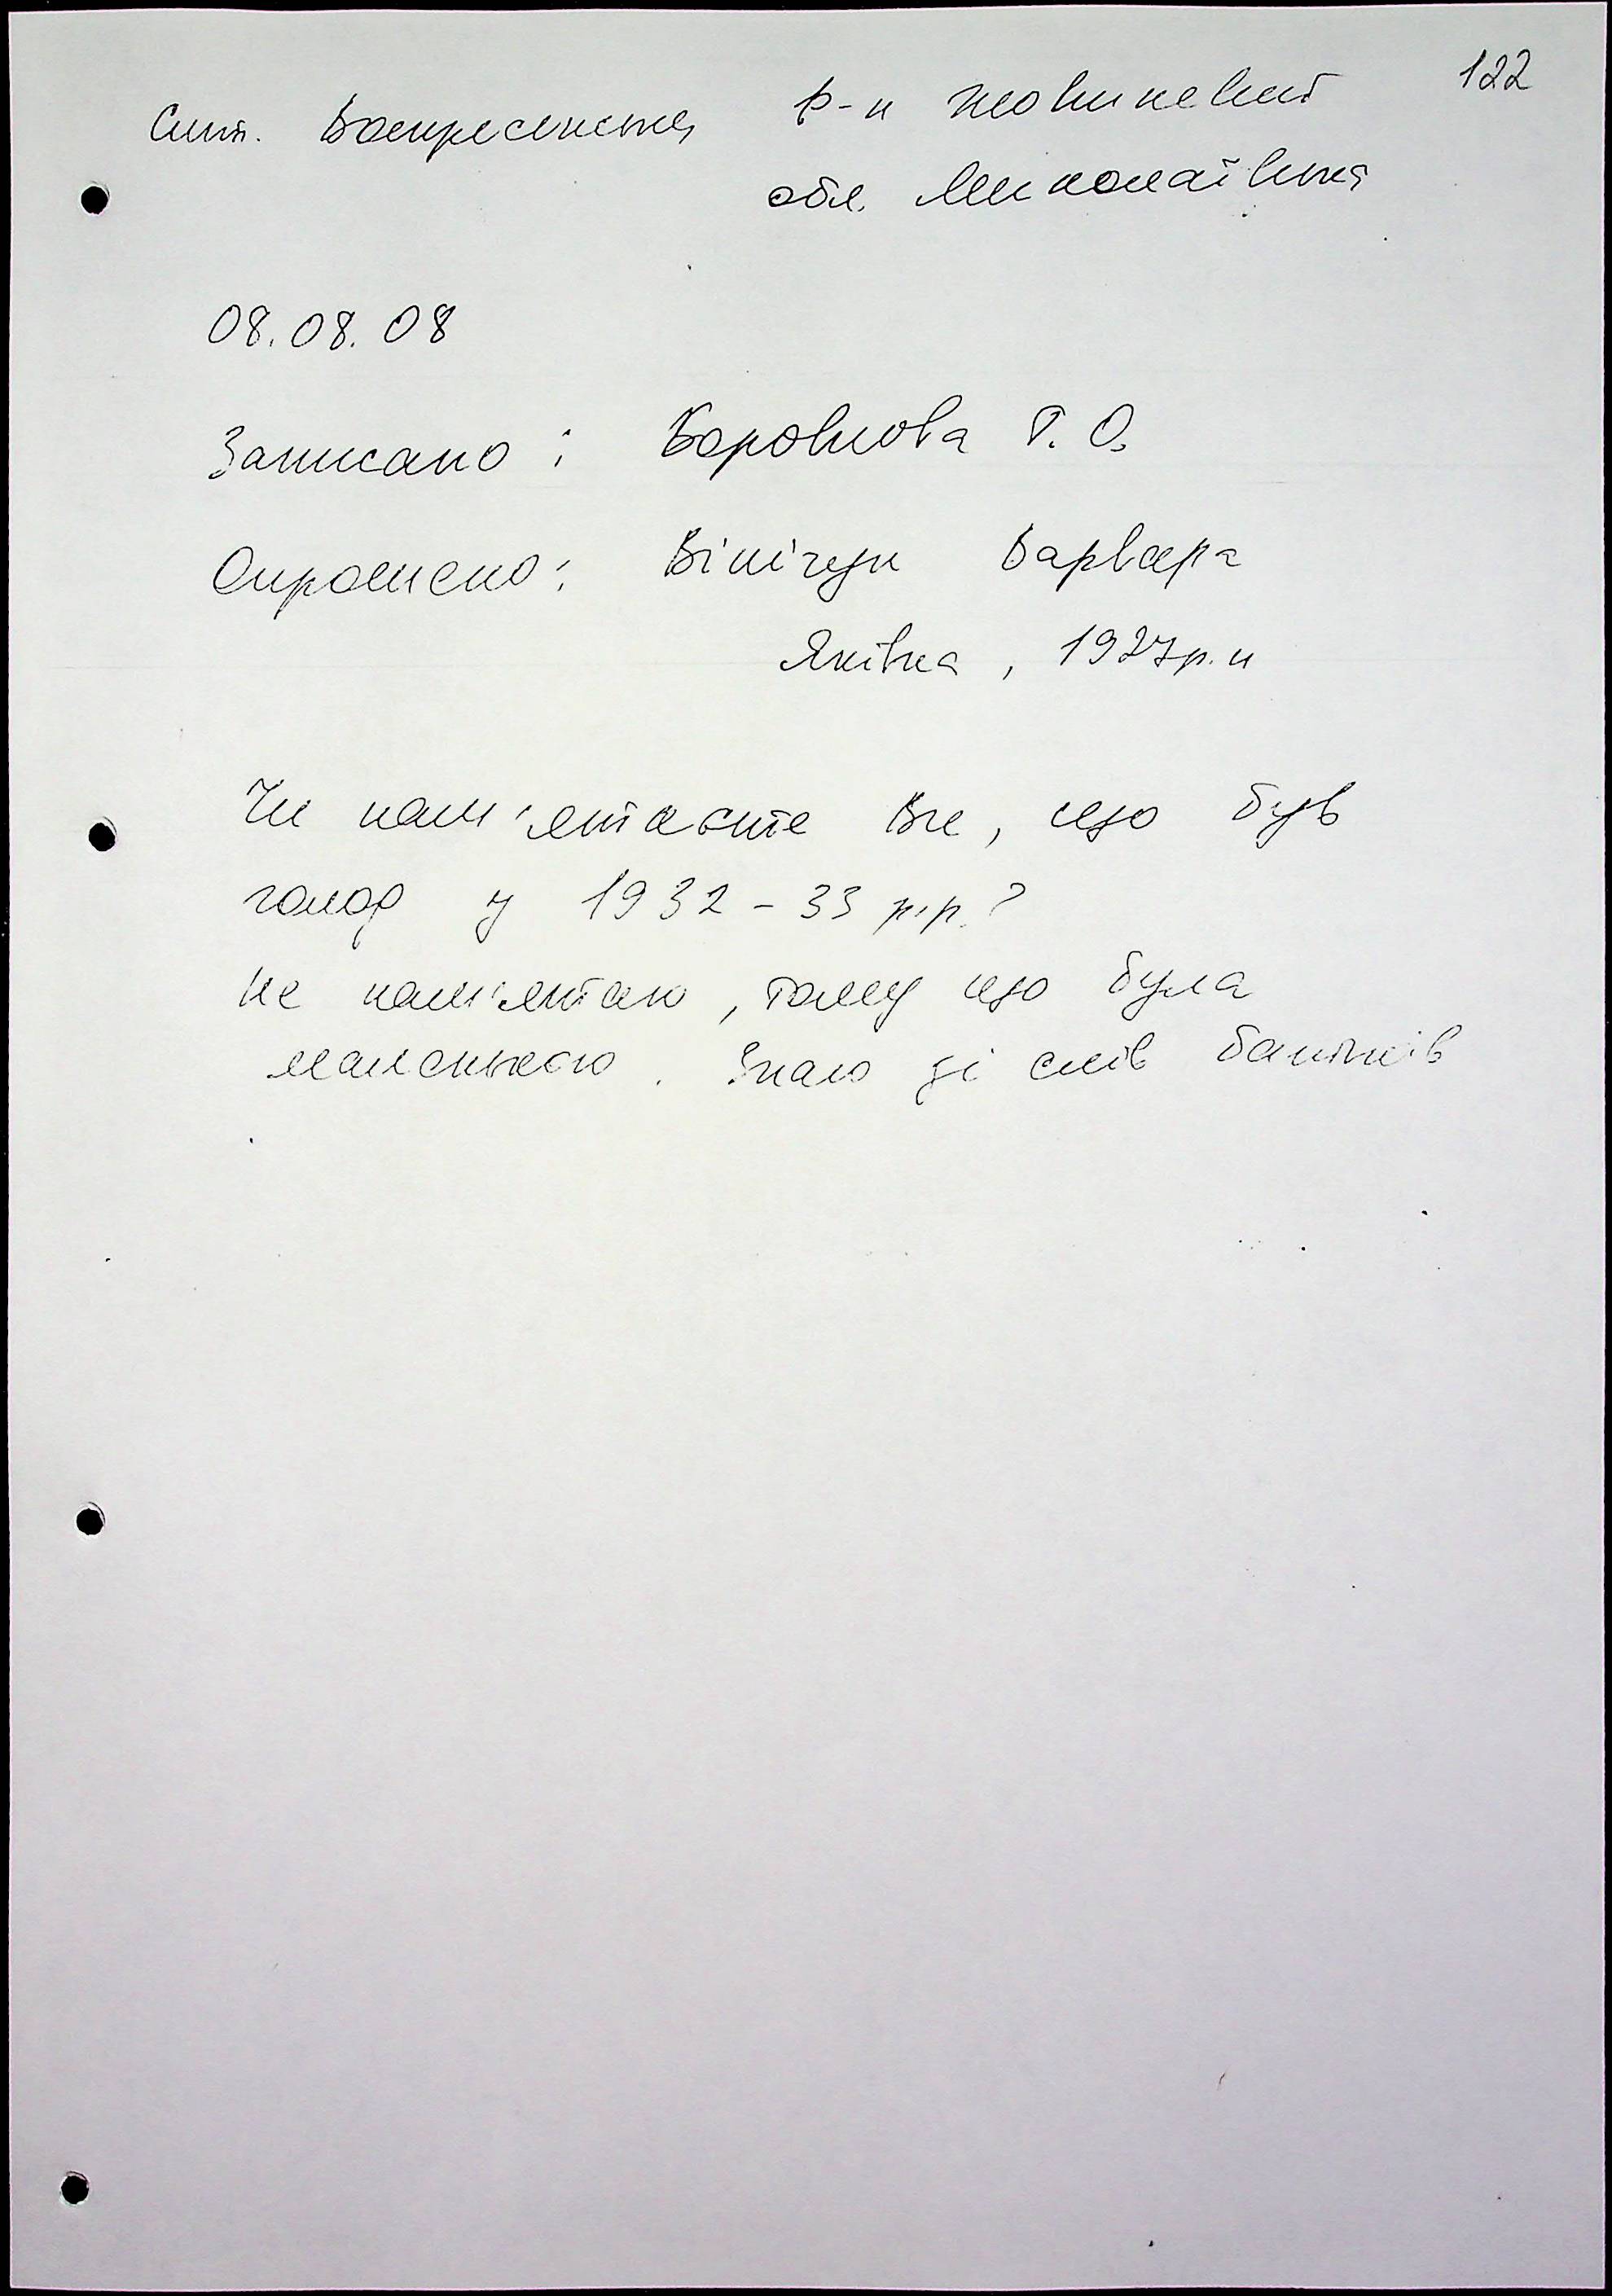 122
Смт. Воскресенська р-н Жовтневий
обл. Миколаївська
08.08.08
Записано: Боровкова Т. О.
Опрошено: Вінічук Варвара
Яківна, 1927 р. н
Чи пам'ятаєте Ви, що був
голод у 1932-33 р.р.?
Не пам'ятаю, тому що була
маленькою. Знаю зі слів батьків